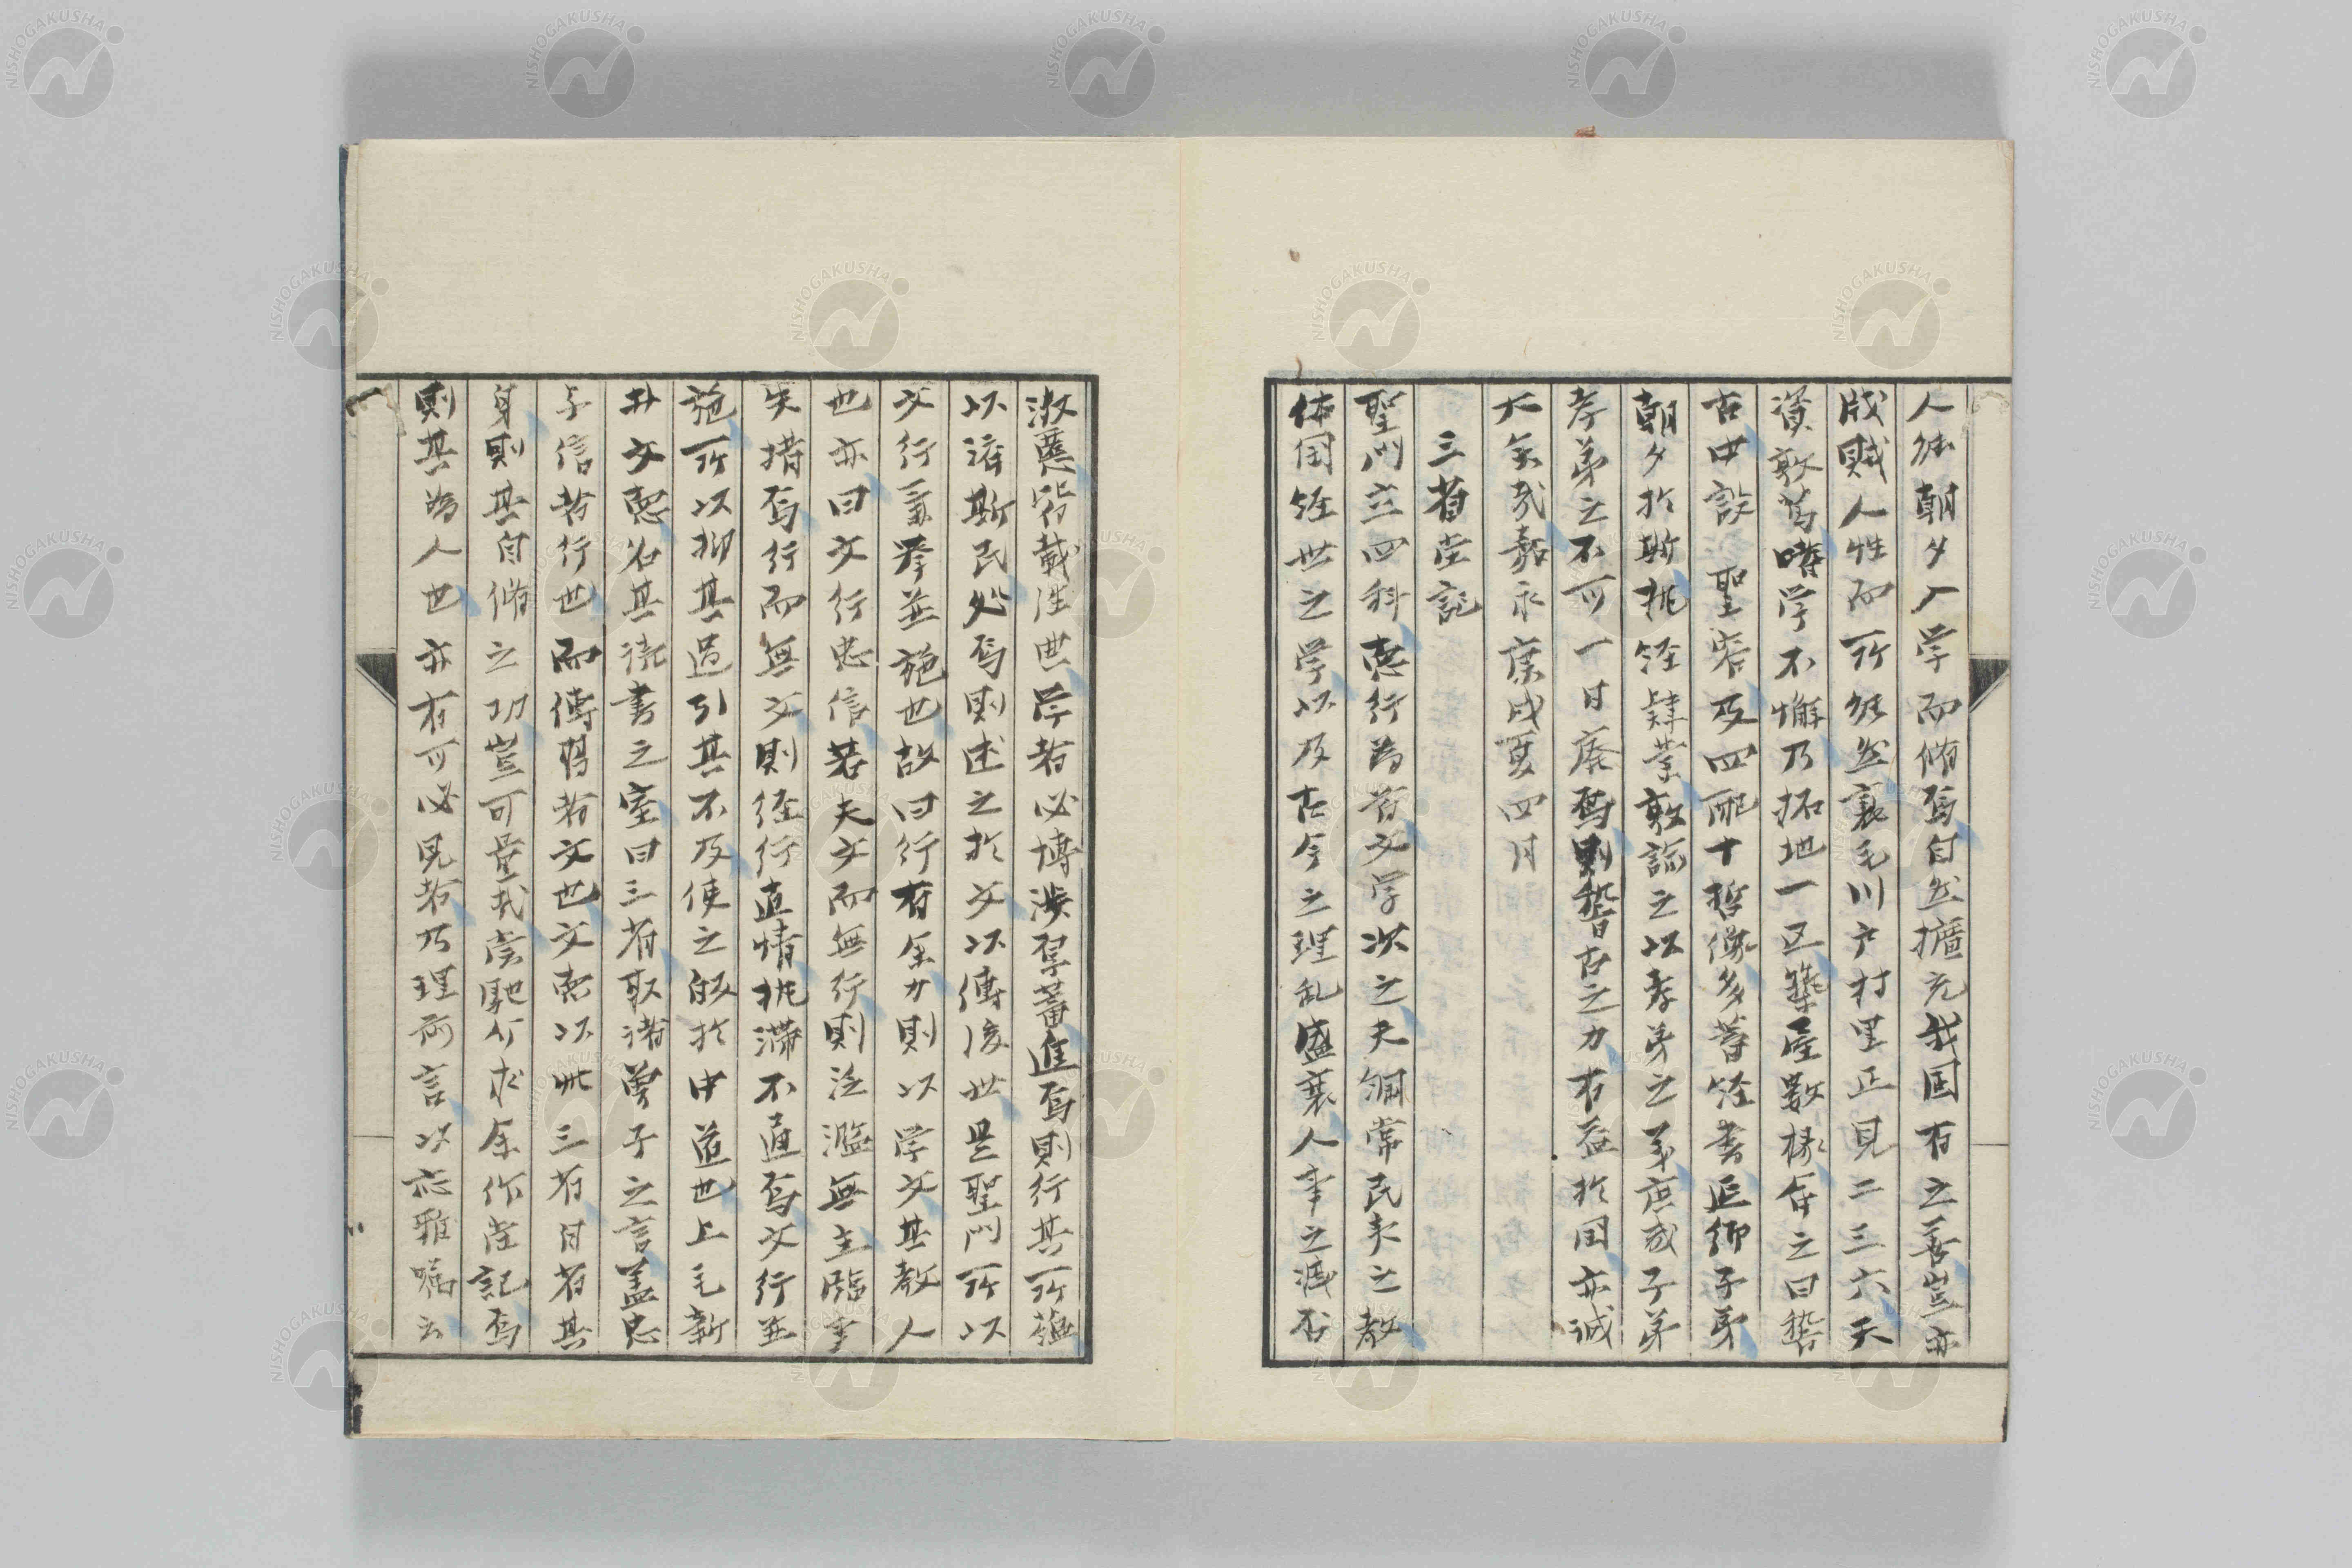 人能朝夕入学而脩焉自然擴充我固有之善豈亦
戕賊人性而所能然哉毛川戸村里正見二三六天
資敦篤嗜学不懈乃拓地一区築屋数椽命之曰稽
古中設聖容及四配十哲像多蓄経書延郷子弟
朝夕於斯執経肄業敦諭之以孝弟之義庶或子弟
孝弟之不可一日廃焉則稽古之力有益於国亦誠
大矣哉嘉永庚戌夏四月
三省堂記
聖門立四科徳行為首文学次之夫綱常民夷之教
体国経世之学以及古今之理乱盛衰人事之減否
淑慝皆載往世學者必博渉厚蓄進焉則行其所蘊
以済斯民処焉則述之於文以伝後世是聖門所以
文行兼挙並施也故曰行有余力則以学文其教人
也亦曰文行忠信若夫文而無行則泛濫無主臨事
失措焉行而無文則径行直情執滞不通焉文行並
施所以抑其過引其不及使之皈於中道也上毛新
井文悳名其読書之室曰三省取諸曽子之言蓋忠
与信者行也而傳習者文也文悳以此三省日省其
身則其自脩之功豈可量哉嘗馳介求余作堂記焉
則其為人也亦有可必見者乃理前言以応雅嘱云